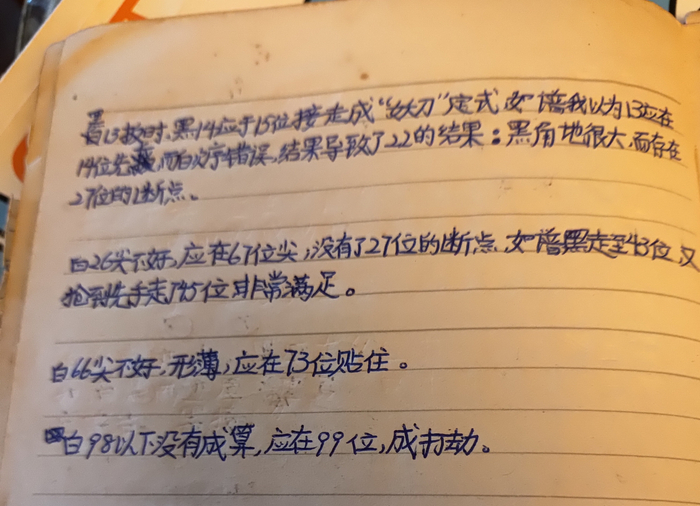 黑13扳时,黑14应于15位接走成“妖刀”定式,如谱我以为13应在
14位先,而白次序错误,结果导致了22的结果:黑角地很大,而存在
27位的断点。
白26尖不好,应在67位尖,没有了27位的断点,如谱黑走至43位,又
抢到先手走了45位非常满足。
白66尖不好,形薄,应在73位贴住。
白98以下没有成算,应在99位,成打劫。